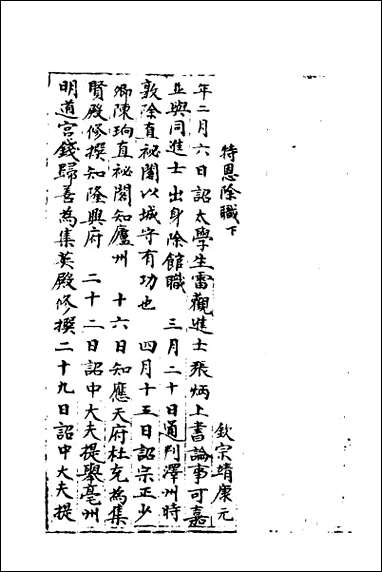 特恩除職下
欽宗靖康元
年二月六日詔太學生雷觀進士張炳上書論事可嘉
並與同進士出身除館職 三月二十日通判澤州時
敦除直祕閣以城守有功也 四月十五日詔宗正少
卿陳珦直祕閣知廬州 十六日知應天府杜充為集
賢殿修撰知隆興府 二十二日詔中大夫提舉亳州
明道宮錢歸善為集英殿修撰二十九日詔中大夫提